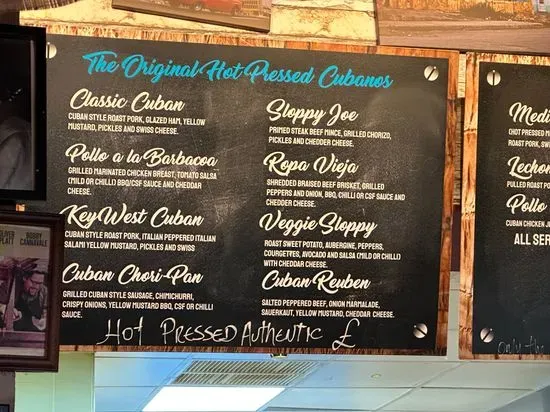 The Original Hot Pressed Cubanos
Classic Cuban
CUBAN STYLE ROAST PORK, GLAZED HAM, YELLOW
MUSTARD, PICKLES AND SWISS CHEESE.
Pollo a la Barbacoa
GRILLED MARINATED CHICKEN BREAST, TOMATO SALSA
(MILD OR CHILLI) BBQ/CSF SAUCE AND CHEDDAR
CHEESE.
Key West Cuban
CUBAN STYLE ROAST PORK, ITALIAN PEPPERED ITALIAN
SALAMI YELLOW MUSTARD, PICKLES AND SWISS
Cuban Chori-Pan
GRILLED CUBAN STYLE SAUSAGE, CHIMICHURRI,
CRISPY ONIONS, YELLOW MUSTARD BBQ, CSF OR CHILLI
SAUCE.
Sloppy Joe
PRIMED STEAK BEEF MINCE, GRILLED CHORIZO,
PICKLES AND CHEDDER CHEESE.
Ropa Vieja
SHREDDED BRAISED BEEF BRISKET, GRILLED
PEPPERS AND ONION, BBQ, CHILLI OR CSF SAUCE AND
CHEDDER CHEESE.
Veggie Sloppy
ROAST SWEET POTATO, AUBERGINE, PEPPERS,
COURGETTES, AVOCADO AND SALSA (MILD OR CHILLI)
WITH CHEDDAR CHEESE.
Cuban Reuben
SALTED PEPPERED BEEF, ONION MARMALADE,
SAUERKAUT, YELLOW MUSTARD, CHEDDAR CHEESE.
HOT PRESSED AUTHENTIC £
Medi
CHOT PRESSED M
ROAST PORK, SW
Lechon
PULLED ROAST P
Pollo
CUBAN CHICKEN
ALL SER
only the
OLIVER
PLATT
BOBBY
CANNAVALE